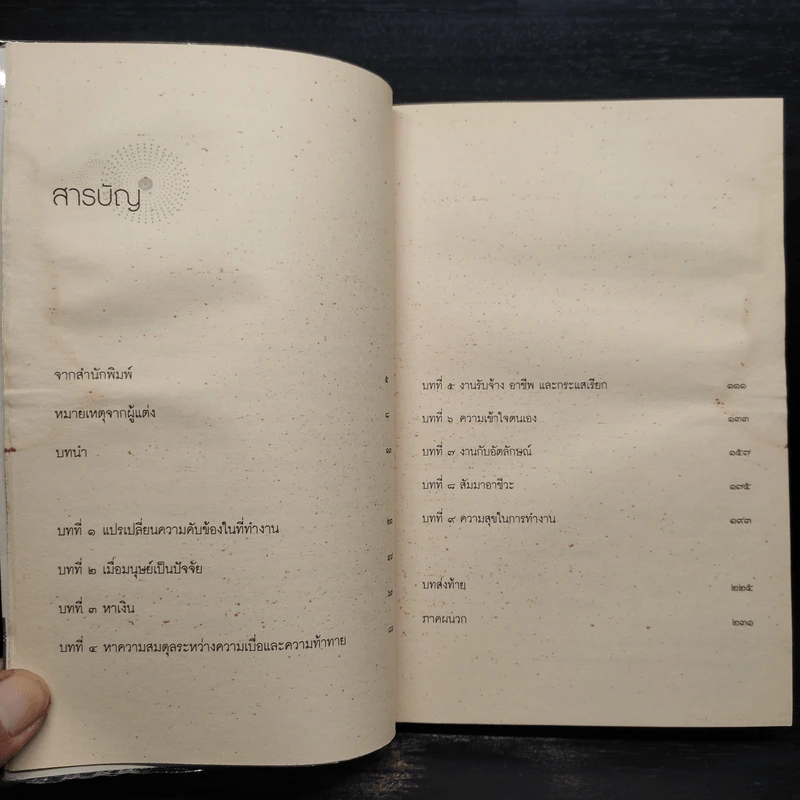 สารบัญ
จากสำนักพิมพ์ ๕
หมายเหตุจากผู้แต่ง ๘
บทนำ
บทที่ ๑ แปรเปลี่ยนความคับข้องในที่ทำงาน
บทที่ ๒ เมื่อมนุษย์เป็นปัจจัย
บทที่ ๓ หาเงิน
บทที่ ๔ หาความสมดุลระหว่างความเบื่อและความท้าทาย
บทที่ ๕ งานรับจ้าง อาชีพ และกระแสเรียก ๑๑๑
บทที่ ๖ ความเข้าใจตนเอง ๑๓๓
บทที่ ๗ งานกับอัตลักษณ์ ๑๕๗
บทที่ ๘ สัมมาอาชีวะ ๑๗๕
บทที่ ๙ ความสุขในการทำงาน ๑๙๓
บทส่งท้าย ๒๒๕
ภาคผนวก ๒๓๑